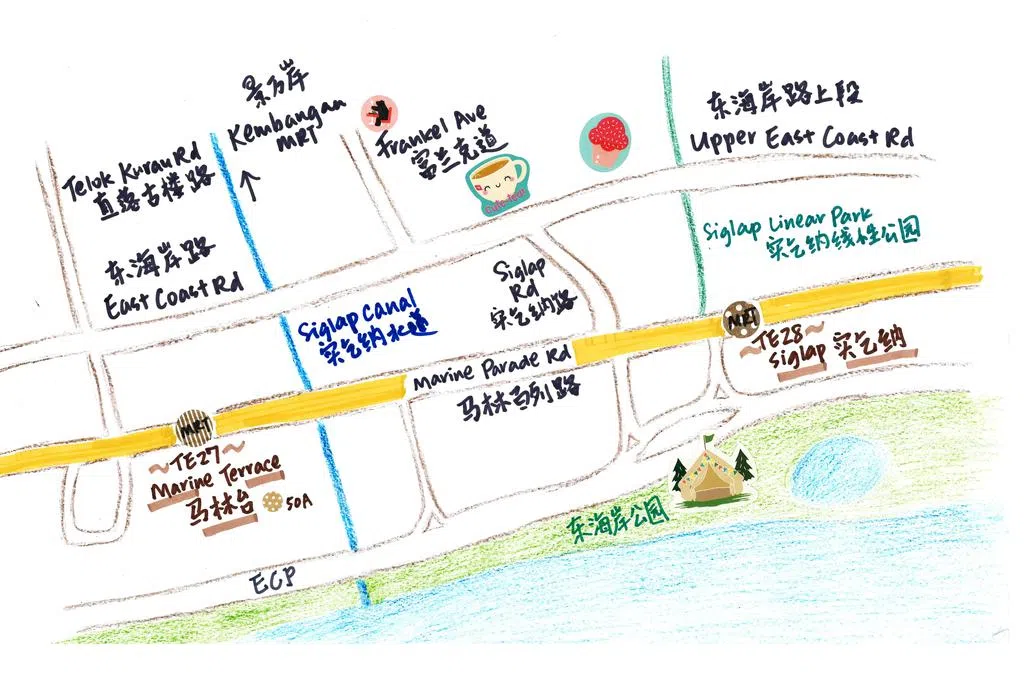 景万岸
Kembangan
MRT
Telok Kurau Rd
直落古楼路
Frankel Ave
富兰克道
Cute-tea!
东海岸路上段
Upper East Coast Rd
东海岸路
East Coast Rd
Siglap Linear Park
实乞纳线性公园
Siglap
Rd
实乞纳路
Siglap Canal
实乞纳水道
MRT
TE28
Siglap 实乞纳
Marine Parade Rd
马林百列路
MRT
~TE27~
Marine Terrace
马林台
50A
东海岸公园
ECP